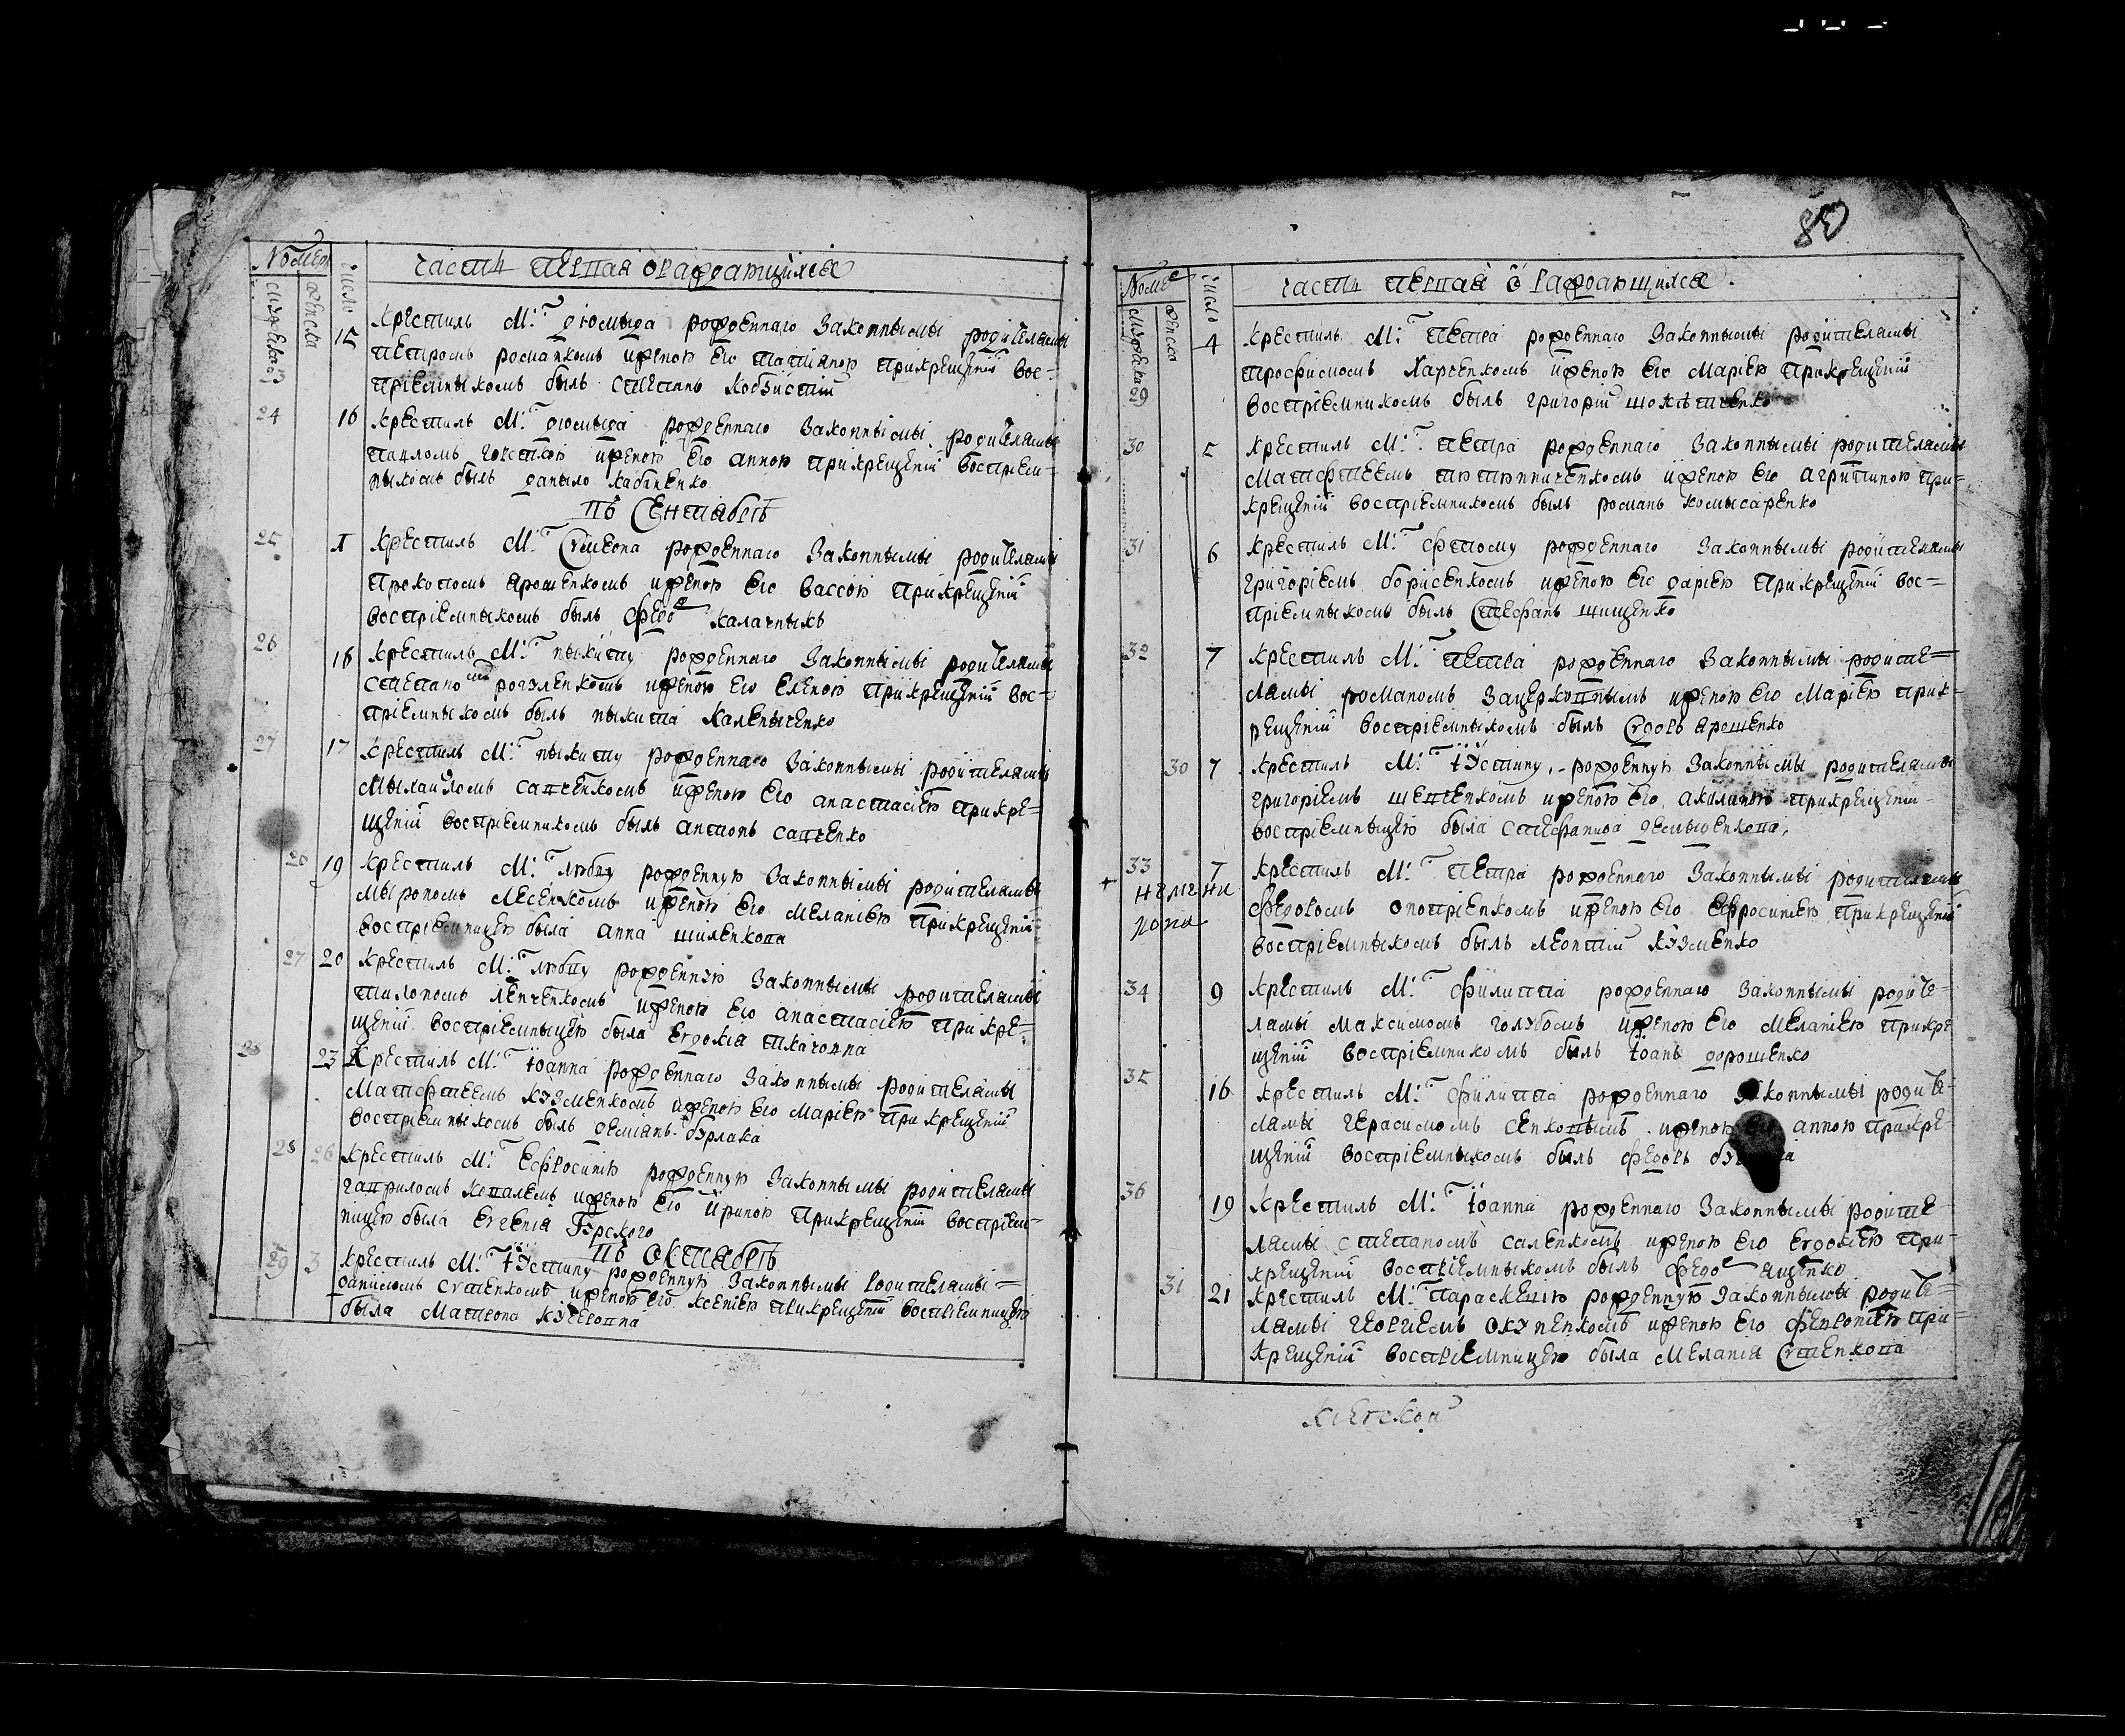 Номер число часть первая о раждающихся
мужеска женска
15 крестиль М: дiомыда рожденнаго Законнымы родителямы
петромь романкомь и женою его татiаною при крещенiй вос-
прiемныкомь быль степань кобзистiй
24 16 крестиль М: дiомыда рожденнаго Законнымы родителямы
павломь и женою его анною при крещенiй воспрiем-
ныкомь быль даныло кабаненко
въ Сентябрѣ
25 1 крестиль М: Сѵмеона рожденнаго Законнымы родителямы
прокопомь ярошенкомь и женою его вассою при крещенiй
воспрiемныкомь быль федорь калачныкь
26 16 крестиль М: ныкиту рожденнаго Законнымы родителямы
степаномь и женою его еленою при крещенiй вос-
прiемныкомь быль ныкита каленыченко
27 17 крестиль М: ныкиту рожденнаго Законнымы родителямы
мыхаиломь савченкомь и женою его анастасiею при кре-
щенiй воспрiемникомь быль антонь савченко
26 19 крестиль М: любву рожденную Законнымы родителямы
мырономь лесенкомь и женою его меланiею при крещенiй
воспрiемницею была анна шиленкова
27 20 крестиль М: любву рожденную Законнымы родителямы
пилипомь левченкомь и женою его анастасiею при кре-
щенiй воспрiемныцею была евдокiя ткачовна
28 23 крестиль М: iоанна рожденнаго Законнымы родителямы
матфтеемь кузменкомь и женою его марiею при крещенiй
воспрiемныкомь быль демiянь бурлака
28 26 крестиль М: ефросинiю рожденную Законнымы родителямы
гавриломь ковалемь и женою его ириною при крещенiй воспрiем-
ницею была евгенiя Гурского
въ октябрѣ
29 3 крестиль М: iустину рожденную Законнымы родителямы
данiиломь сутенкомь и женою его ксенiею при крещенiй воспрiемницею
была матрона кучеровна
80
Номер число часть первая о раждающихся
мужеска женска
29 4 крестиль М: петра рожденнаго Законнымы родителямы
трофимомь харченкомь и женою его марiею при крещенiй
воспрiемникомь быль григорiй
30 5 крестиль М: петра рожденнаго Законнымы родителямы
матфтеемь тютюнниченкомь и женою его агрипиною при-
крещенiй воспрiемникомь быль романь комысаренко
31 6 крестиль М: фтому рожденнаго Законнымы родителямы
григорiемь борисенкомь и женою его дарiею при крещенiй вос-
прiемныкомь быль Стефань щищенко
32 7 крестиль М: петра рожденнаго Законнымы родите-
лямы романомь зацерковнымь и женою его марiею при к-
рещенiй воспрiемныкомь быль Сѵдорь ярошенко
30 7 крестиль М: iустину рожденную Законнымы родителямы
григорiемь шевченкомь и женою его акилиною при крещенiй
воспрiемныцею была стефанида демыденкова
33 7 крестиль М: петра рожденнаго Законнымы родителямы
федоромь онопрiенкомь и женою его ефросинiею при крещенiй
воспрiемныкомь быль леонтiй кузменко
34 9 крестиль М: филиппа рожденнаго Законнымы родите-
лямы максимомь голубомь и женою его меланiею при кре-
щенiй воспрiемникомь быль iоань дорошенко
35 16 крестиль М: филиппа рожденнаго Законнымы родите-
лямы герасимомь сенковымь и женою его анною при кре-
щенiй воспрiемныкомь быль федорь
36 19 крестиль М: iоанна рожденнаго Законнымы родите-
лямы степаномь саленкомь и женою его евдокiею при-
крещенiй воспрiемныкомь быль федорь яценко
31 21 крестиль М: параскевiю рожденную Законнымы родите-
лямы георгiемь окуненкомь и женою его февронiею при-
крещенiй воспрiемницею была меланiя Сутенкова